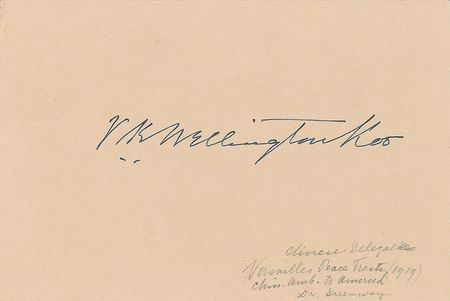 V K Wellington Koo
Chinese Delegate
Versailles Peace Treaty (1919)
Chin. Amb. to America
Dr. Greenway